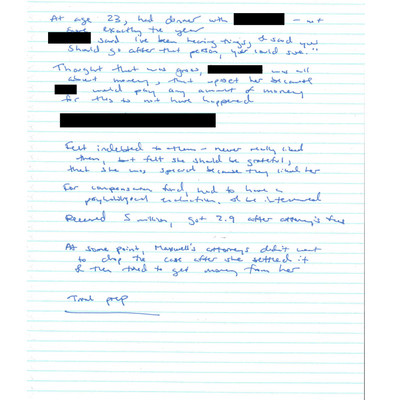 At age 23, had dinner with — not
sure exactly the year
said I've been hearing things, & said you
should go after that person, you could sue."
Thought that was gross, was all
about money, that upset her because
would pay any amount of money
for this to not have happened
Felt indebted to them – never really liked
them, but felt she should be grateful,
that she was special because they liked her
For compensation fund, had to have a
psychological evaluation, & be interviewed
Received 5 million, got 2.9 after attorney's fees
At some point, Maxwell's attorneys didn't want
to drop the case after she settled it
& then tried to get money from her
Trial prep